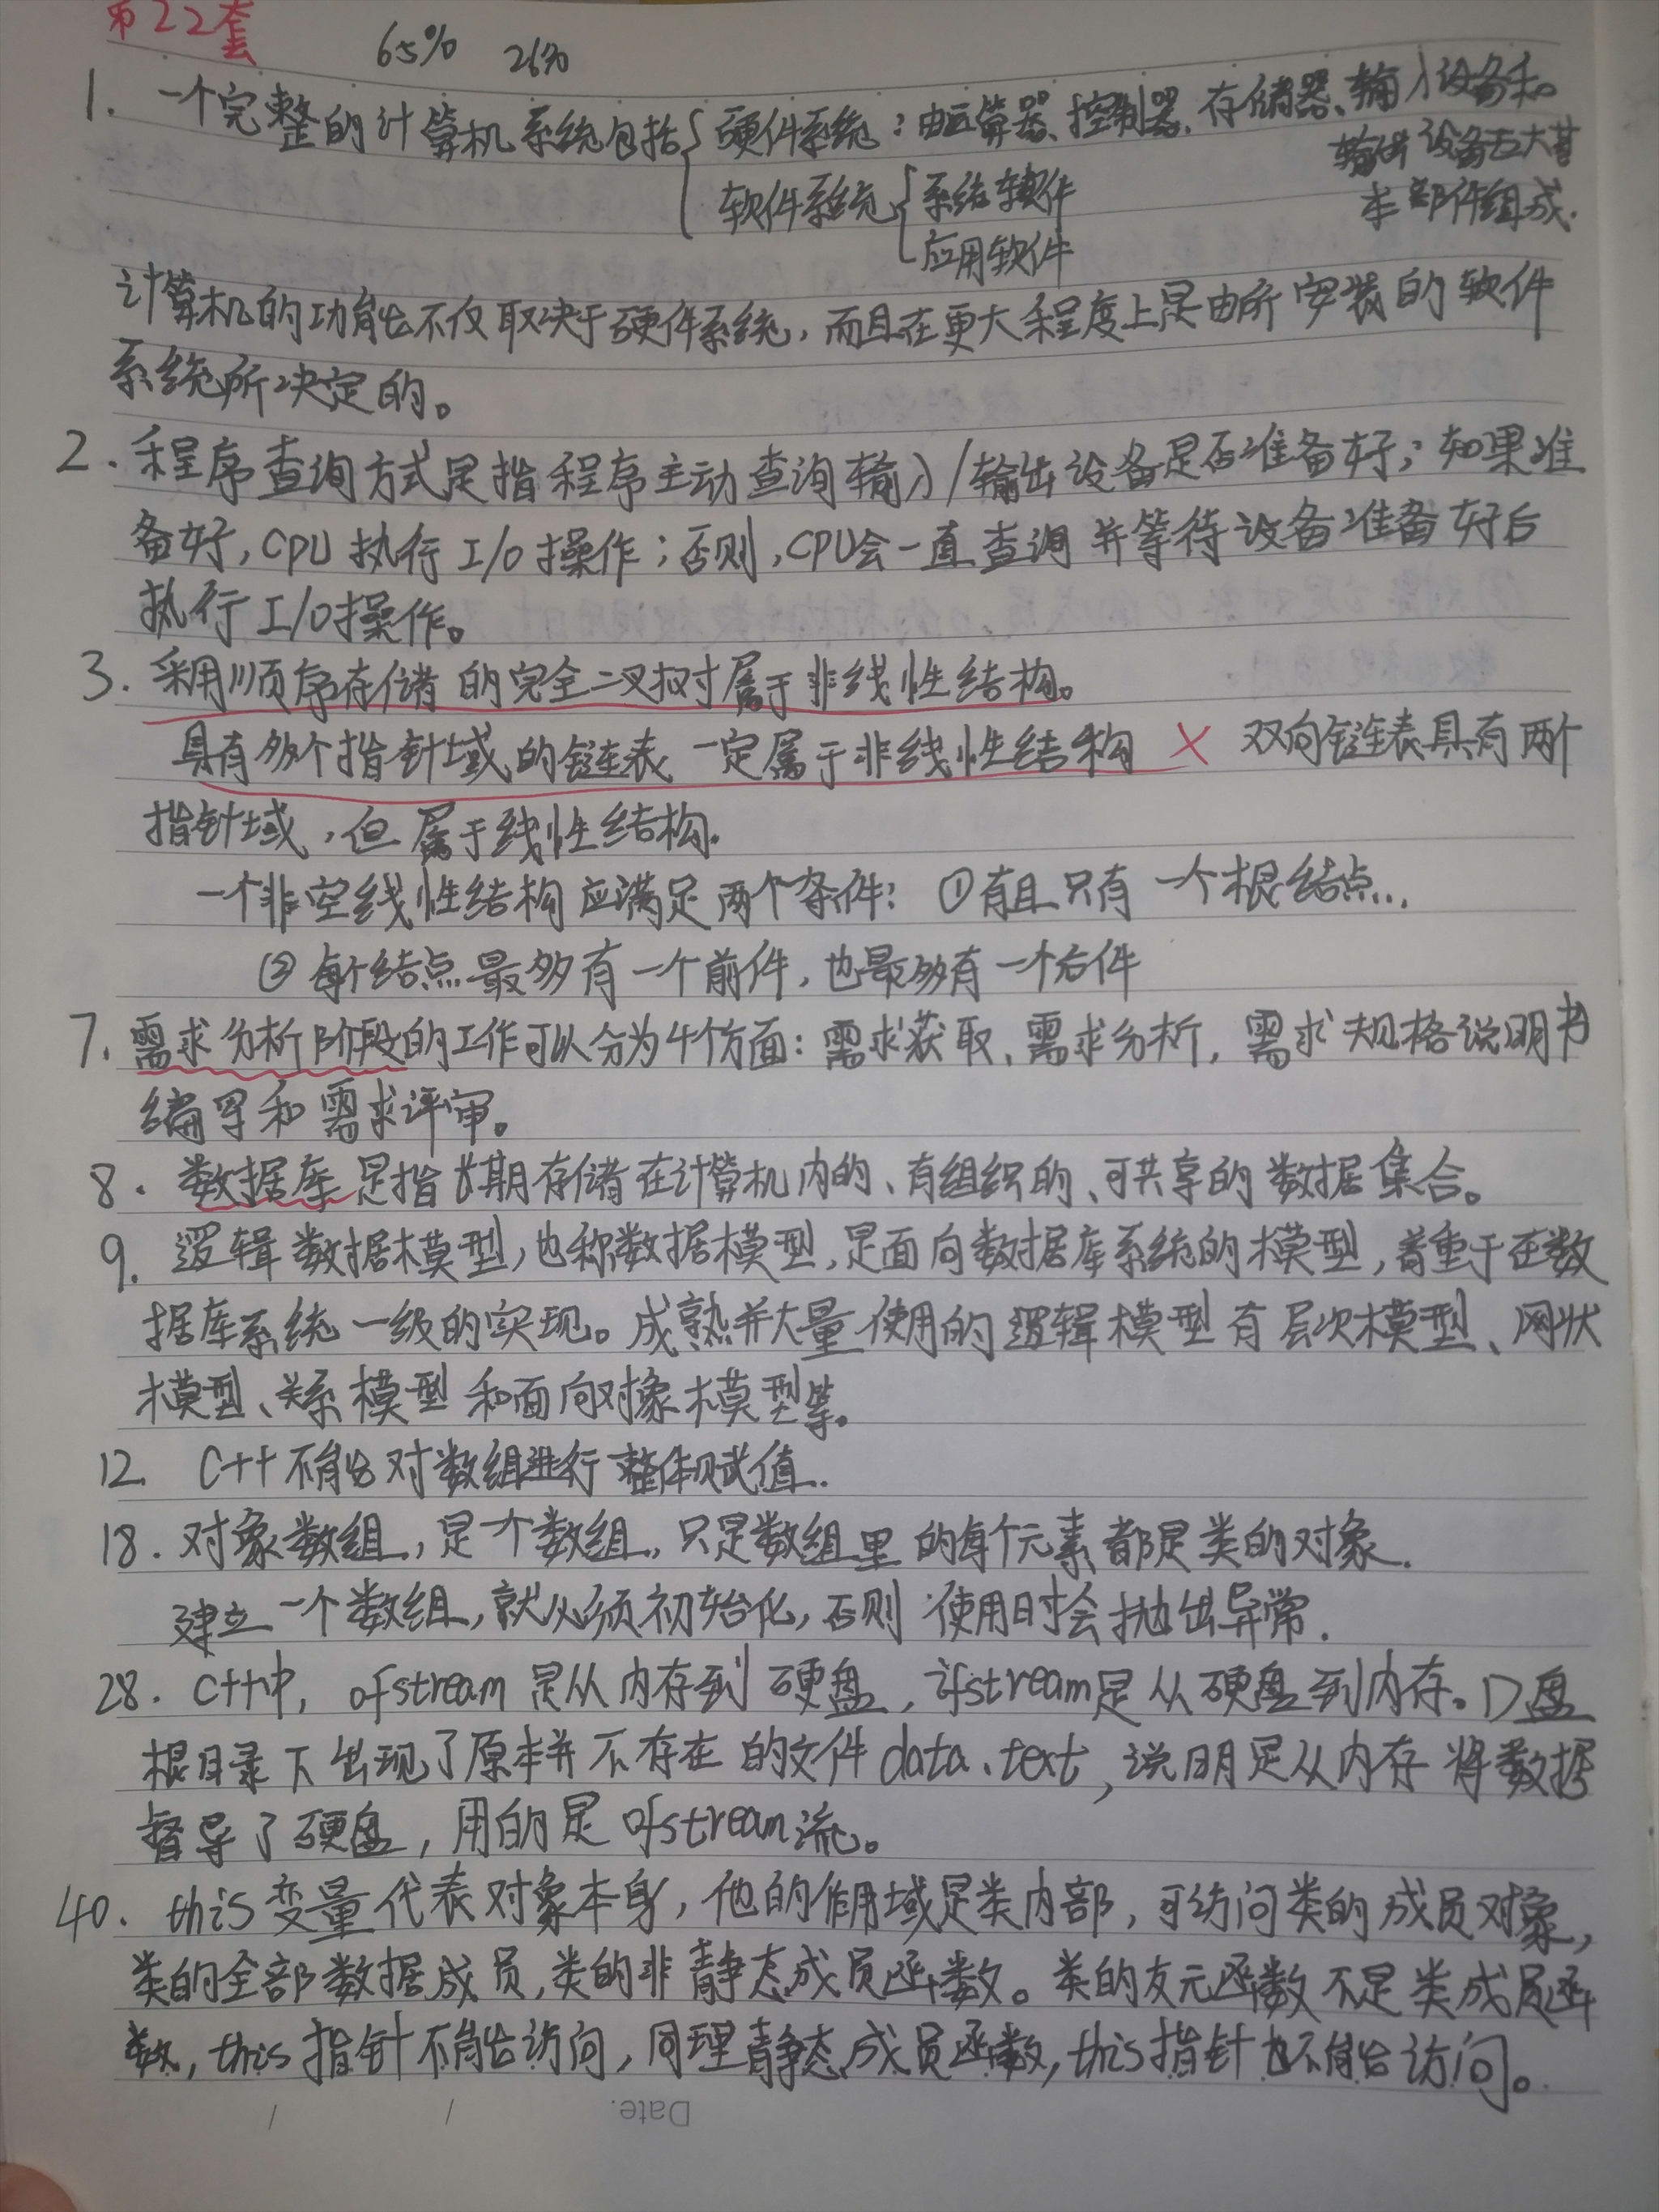 第22套
65% 26分
1. 一个完整的计算机系统包括{硬件系统:由运算器、控制器、存储器、输入设备和
输出设备五大基
软件系统{系统软件
本部件组成.
应用软件
计算机的功能不仅取决于硬件系统,而且在更大程度上是由所安装的软件
系统所决定的。
2. 程序查询方式是指程序主动查询输入/输出设备是否准备好;如果准
备好,CPU执行I/O操作;否则,CPU会一直查询并等待设备准备好后
执行I/O操作。
3. 采用顺序存储的完全二叉树属于非线性结构。
具有多个指针域的链表一定属于非线性结构 × 双向链表具有两个
指针域,但属于线性结构.
一个非空线性结构应满足两个条件: ①有且只有一个根结点.
②每个结点最多有一个前件,也最多有一个后件
7. 需求分析阶段的工作可以分为4个方面:需求获取、需求分析,需求规格说明书
编写和需求评审。
8. 数据库是指长期存储在计算机内的、有组织的、可共享的数据集合。
9. 逻辑数据模型,也称数据模型,是面向数据库系统的模型,着重于在数
据库系统一级的实现。成熟并大量使用的逻辑模型有层次模型、网状
模型、关系模型和面向对象模型等。
12. C++不能对数组进行整体赋值.
18. 对象数组,是一个数组,只是数组里的每个元素都是类的对象.
建立一个数组,就必须初始化,否则使用时会抛出异常.
28. C++中,ofstream是从内存到硬盘,ifstream是从硬盘到内存。D盘
根目录下出现了原本并不存在的文件data.text,说明是从内存将数据
督导了硬盘,用的是ofstream流。
40. this变量代表对象本身,他的作用域是类内部,可访问类的成员对象,
类的全部数据成员,类的非静态成员函数。类的友元函数不是类成员函
数,this指针不能访问,同理静态成员函数,this指针也不能访问。
Date.